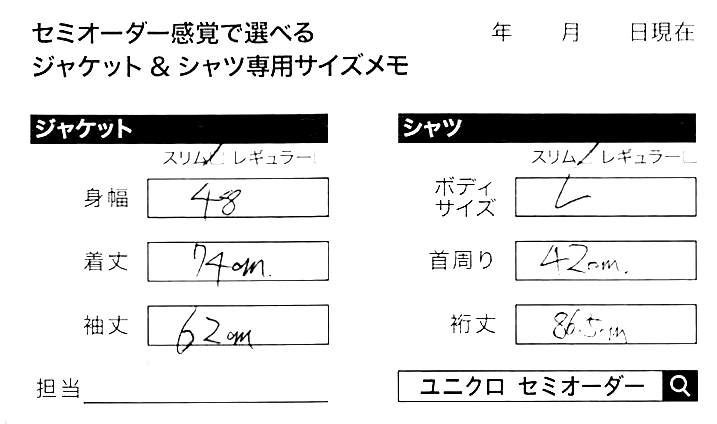 セミオーダー感覚で選べる
ジャケット & シャツ専用サイズメモ
年 月 日現在
ジャケット
スリム レギュラー
身幅 48
着丈 74cm.
袖丈 62cm
担当
シャツ
スリム レギュラー
ボディ
サイズ L
首周り 42cm.
裄丈 86.5cm
ユニクロ セミオーダー